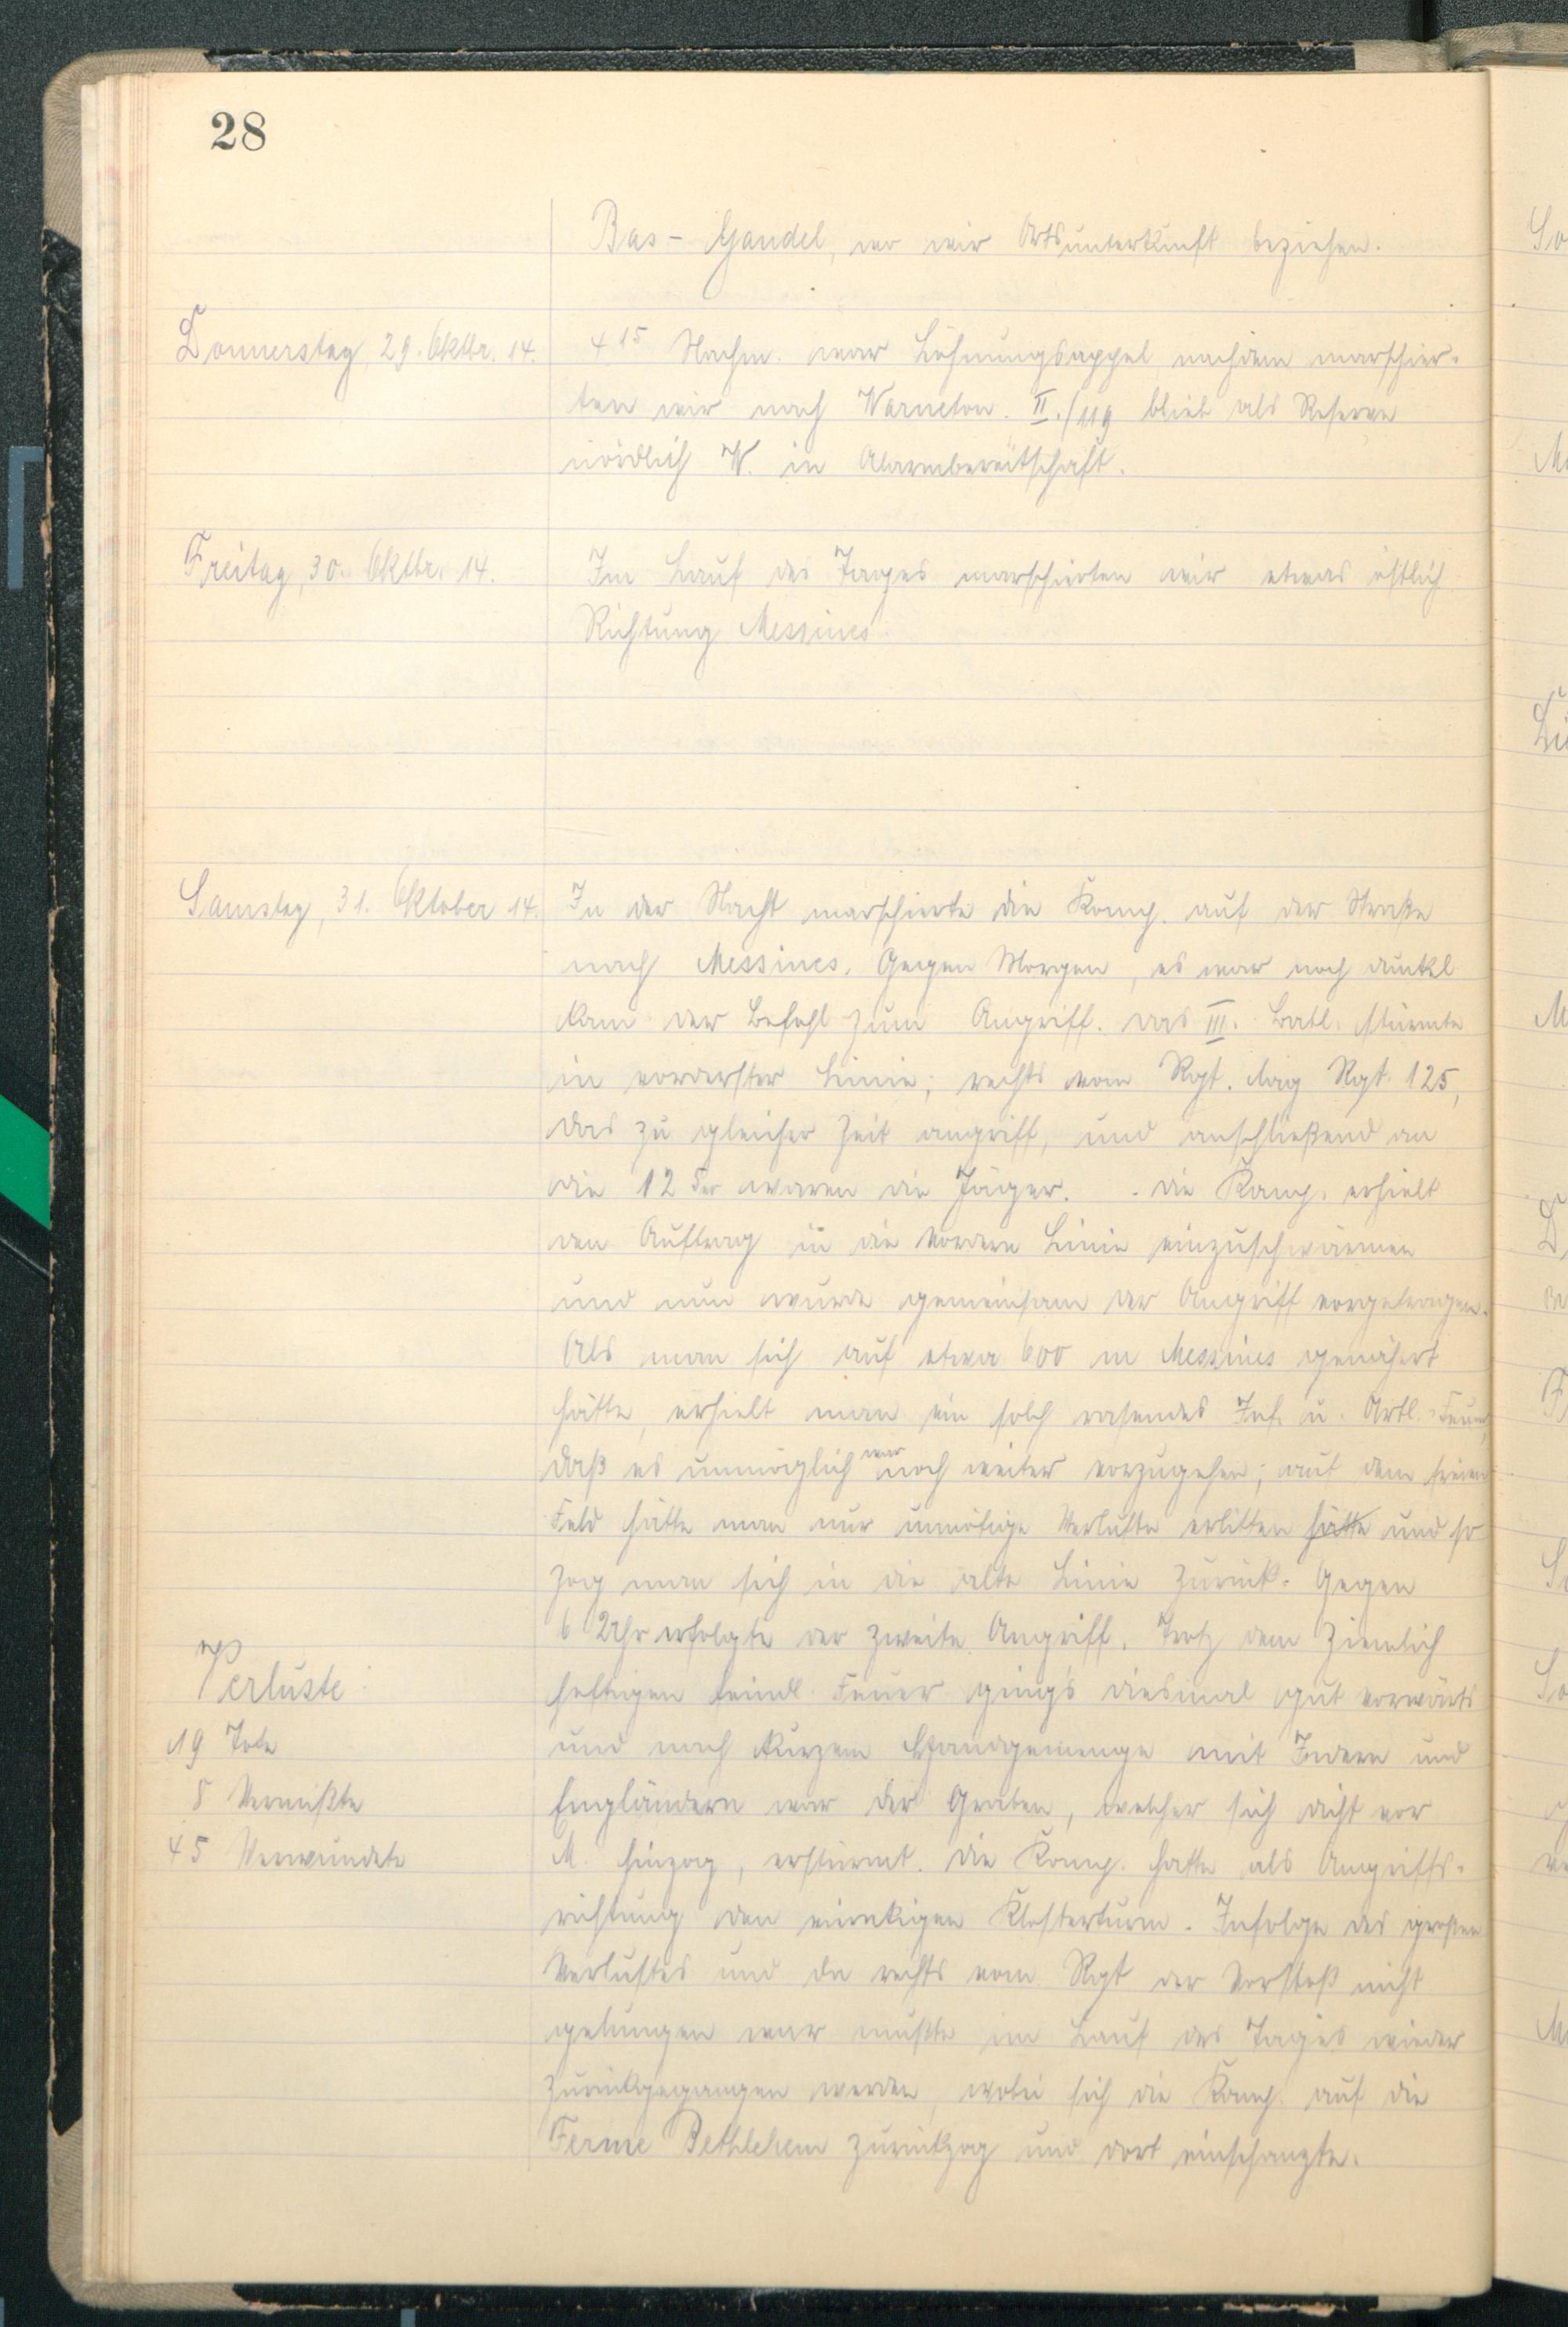 28
Bas-Gandel, wo wir Ortsunterkunft beziehen.
Donnerstag, 29. Oktbr. 14.
4 15 Nachm. war Löhnungsappel nachdem marschier-
ten wir nach Warneton. II./119 blieb als Reserve
nördlich W. in Alarmbereitschaft.
Freitag, 30. Oktbr. 14.
Im Lauf des Tages marschierten wir etwas östlich
Richtung Messines.
Samstag, 31. Oktober 14.
In der Nacht marschierte die Komp. auf der Straße
nach Messines. Gegen Morgen, es war noch dunkel
kam der Befehl zum Angriff. das III. Batl. stürmte
in vorderster Linie; rechts vom Rgt. lag Rgt. 125,
das zu gleicher Zeit angriff, und anschließend an
die 125er waren die Jäger. die Komp. erhielt
den Auftrag in die vordere Linie einzuschwärmen
und nun wurde gemeinsam der Angriff vorgetragen.
Als man sich auf etwa 600 m Messines genähert
hatte, erhielt man ein solch rasendes Inf. u. Artl.-Feuer,
daß es unmöglich war noch weiter vorzugehen; auf dem freien
Feld hätte man nur unnötige Verluste erlitten hätte und so
zog man sich in die alte Linie zurück. Gegen
6 Uhr erfolgte der zweite Angriff. Trotz dem ziemlich
heftigen feindl. Feuer ging's diesmal gut vorwärts
und nach kurzem Handgemenge mit Indern und
Engländern war der Graben, welcher sich dicht vor
M. hinzog, erstürmt. die Komp. hatte als Angriffs-
richtung den viereckigen Klosterturm. Infolge des großen
Verlustes und da rechts vom Rgt der Vorstoß nicht
gelungen war mußte im Lauf des Tages wieder
zurückgegangen werden, wobei sich die Komp. auf die
Ferme Bethlehem zurückzog und dort einschanzte.
Verluste
19 Tote
8 Vermißte
45 Verwundete